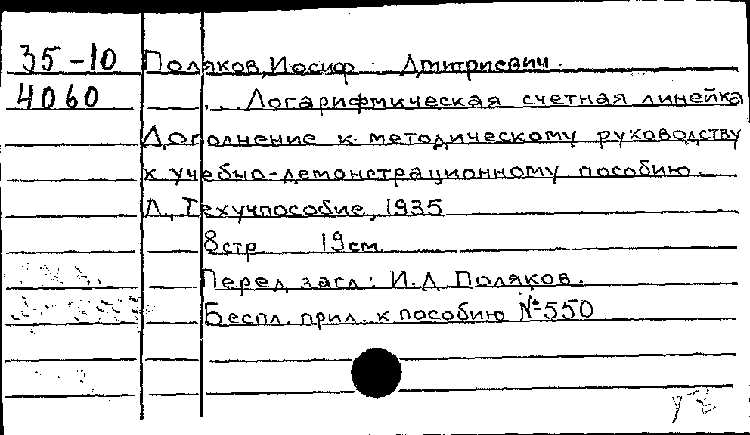 35-10 Поляков, Иосиф Дмитриевич.
4060 Логарифмическая счетная линейка
Дополнение к методическому руководству
к учебно-демонстрационному пособию.
Л., Техучпособие, 1935
8 стр 19 см.
Перед загл.: И.Д. Поляков.
Беспл. прил. к пособию №550